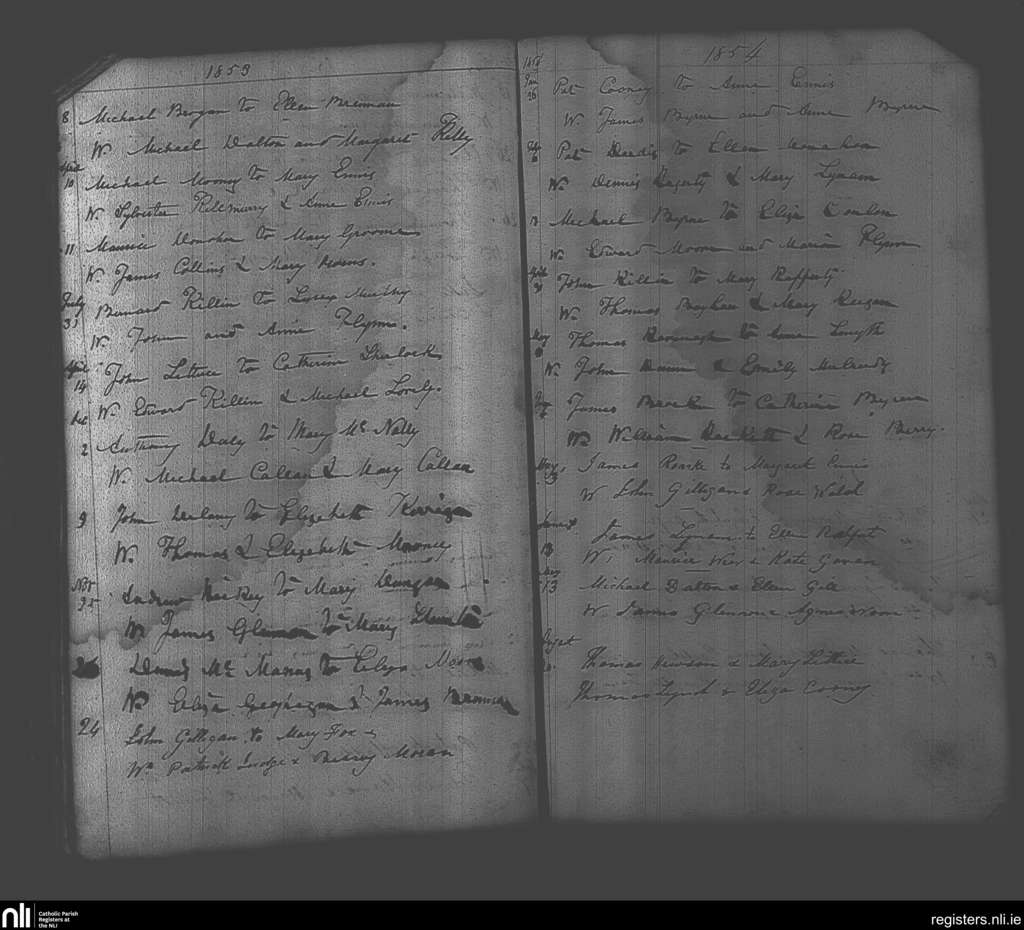 1853
8 Michael Brogan to Ellen Brennan
W. Michael Dalton and Margaret Kelly
April 10 Michael Mooney to Mary Ennis
W Sylvester & Anne Ennis
11 Maurice Donohoe to Mary
W. James Collins & Mary
July 31 Bernard Killin to Murphy
W. John and Annie Flynn.
14 John Lettice to Catherine Sherlock
W. Edward Killin & Michael
2 Anthony Daly to Mary Mc Nally
W. Michael Callan & Mary Callan
9 John Delany to Elizabeth Kerrigan
W. Thomas & Elizabeth Mooney
Nov 25 Andrew Hickey to Mary Dungan
W James to Mary
Denis Mc Manus to Eliza
W Eliza Geoghegan & James Brennan
24 John Gilligan to Mary Fox
Wn Patrick Judge & Moran
1854
1854
Jan 26 Pat Cooney to Anne Ennis
W. James Byrne and Anne Byrne
Pat to Ellen Monahan
Wn Dennis Hagerty & Mary Lynam
Michael Byrne to Eliza Conlon
W. Edward Moore and Maria Flynn
John Killin to Mary Rafferty
W. Thomas & Mary Keegan
May Thomas Kavanagh to Anne Smyth
W. John Dunn & Emily
James to Catherine Byrne
Wn William Hackett & Rose Berry.
James Rourke to Margaret Ennis
W John Gilligan & Rose Walsh
James Lynam to Ellen
W. Maurice Weir & Kate Gavan
13 Michael Dalton & Ellen Gill
W James Glennon & Agnes
Thomas Hewson & Mary Lettice
Thomas Lynch & Eliza Cooney
nli
Catholic Parish
Registers at
the NLI
registers.nli.ie